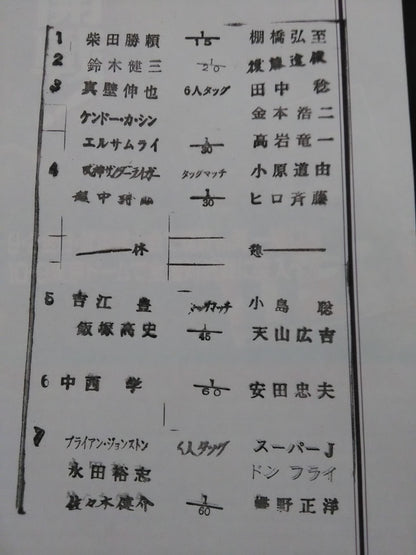 1 柴田勝頼 1/15 棚橋弘至
2 鈴木健三 1/20 後藤達俊
3 真壁伸也 6人タッグ 田中 稔
ケンドー・カ・シン 金本浩二
エルサムライ 1/30 高岩竜一
4 獣神サンダーライガー タッグマッチ 小原道由
越中詩郎 1/30 ヒロ斉藤
休 憩
5 吉江 豊 タッグマッチ 小島 聡
飯塚高史 1/45 天山広吉
6 中西 学 1/60 安田忠夫
7 ブライアン・ジョンストン 6人タッグ スーパーJ
永田裕志 ドン フライ
佐々木健介 1/60 蝶野正洋